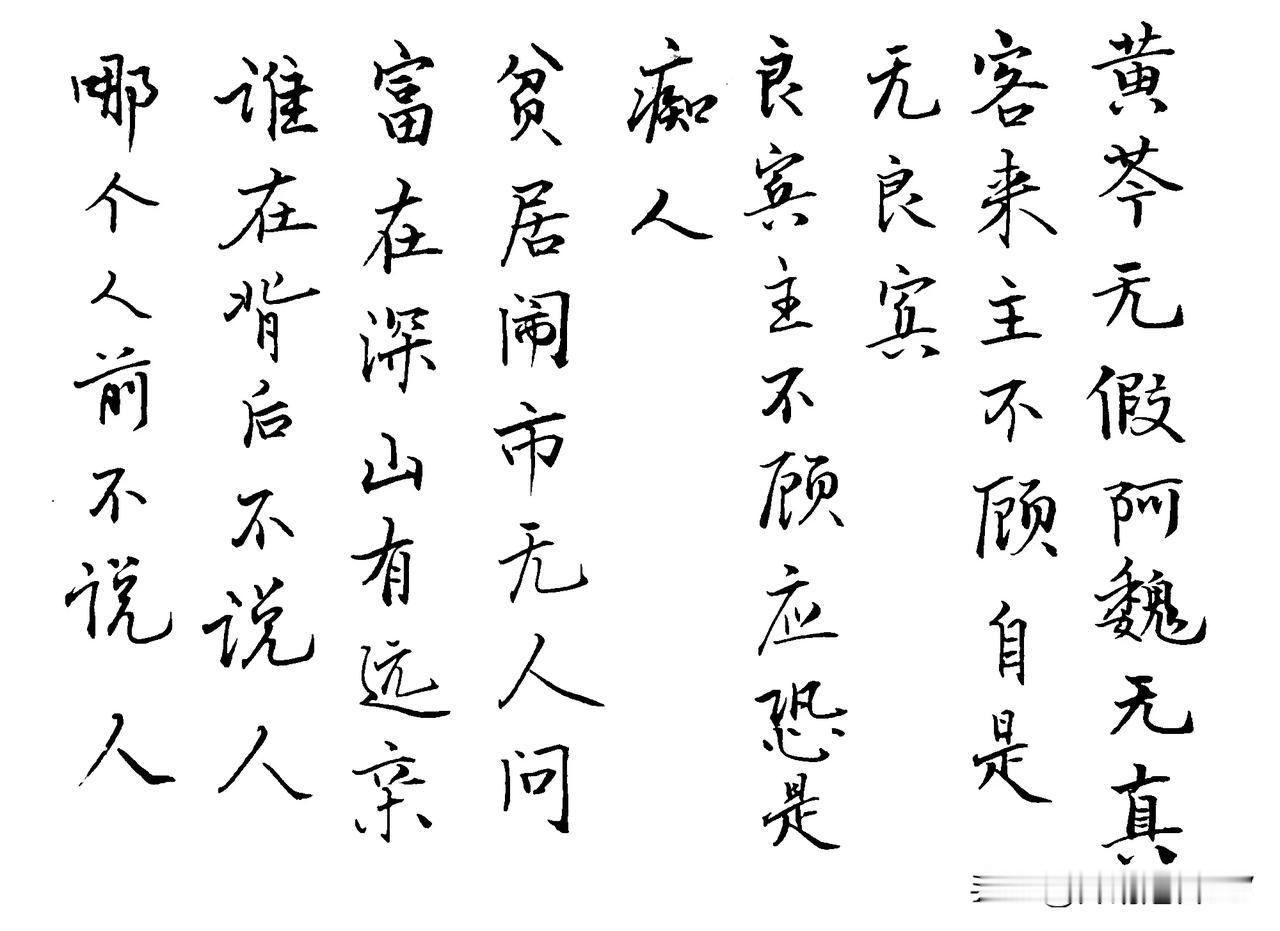 黄芩无假阿魏无真
客来主不顾自是
无良宾
良宾主不顾应恐是
痴人
贫居闹市无人问
富在深山有远亲
谁在背后不说人
哪个人前不说人